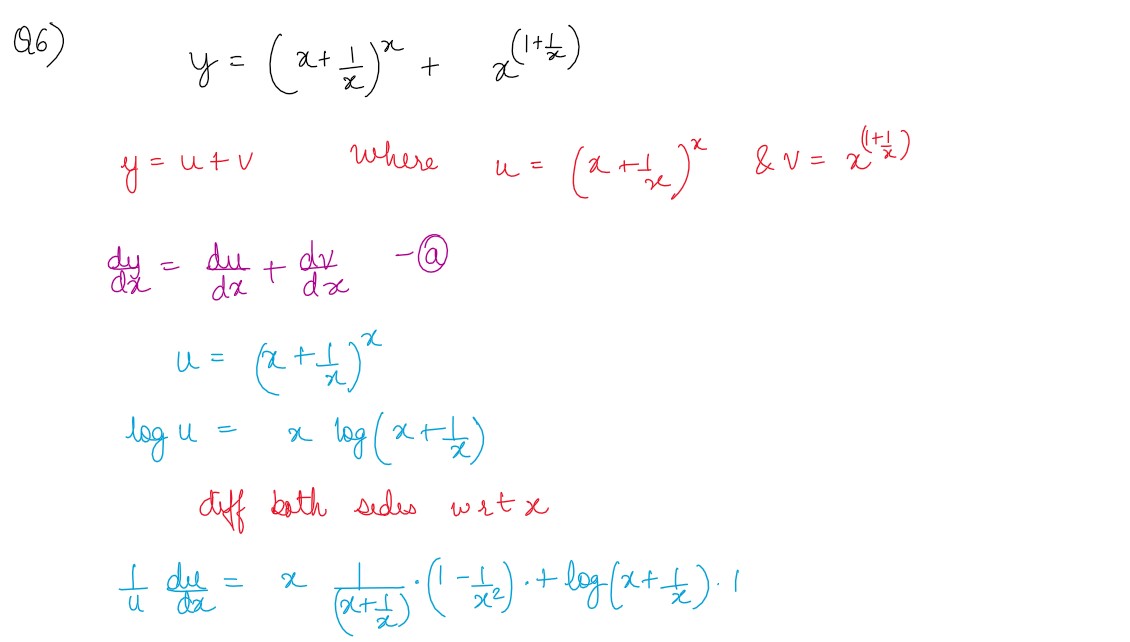 Q6) y = (x + 1/x)^x + x^(1 + 1/x)
y = u + v where u = (x + 1/x)^x & v = x^(1 + 1/x)
dy/dx = du/dx + dv/dx - ⓐ
u = (x + 1/x)^x
log u = x log(x + 1/x)
diff both sides w r t x
1/u du/dx = x 1/(x + 1/x) · (1 - 1/x²) · + log(x + 1/x) · 1